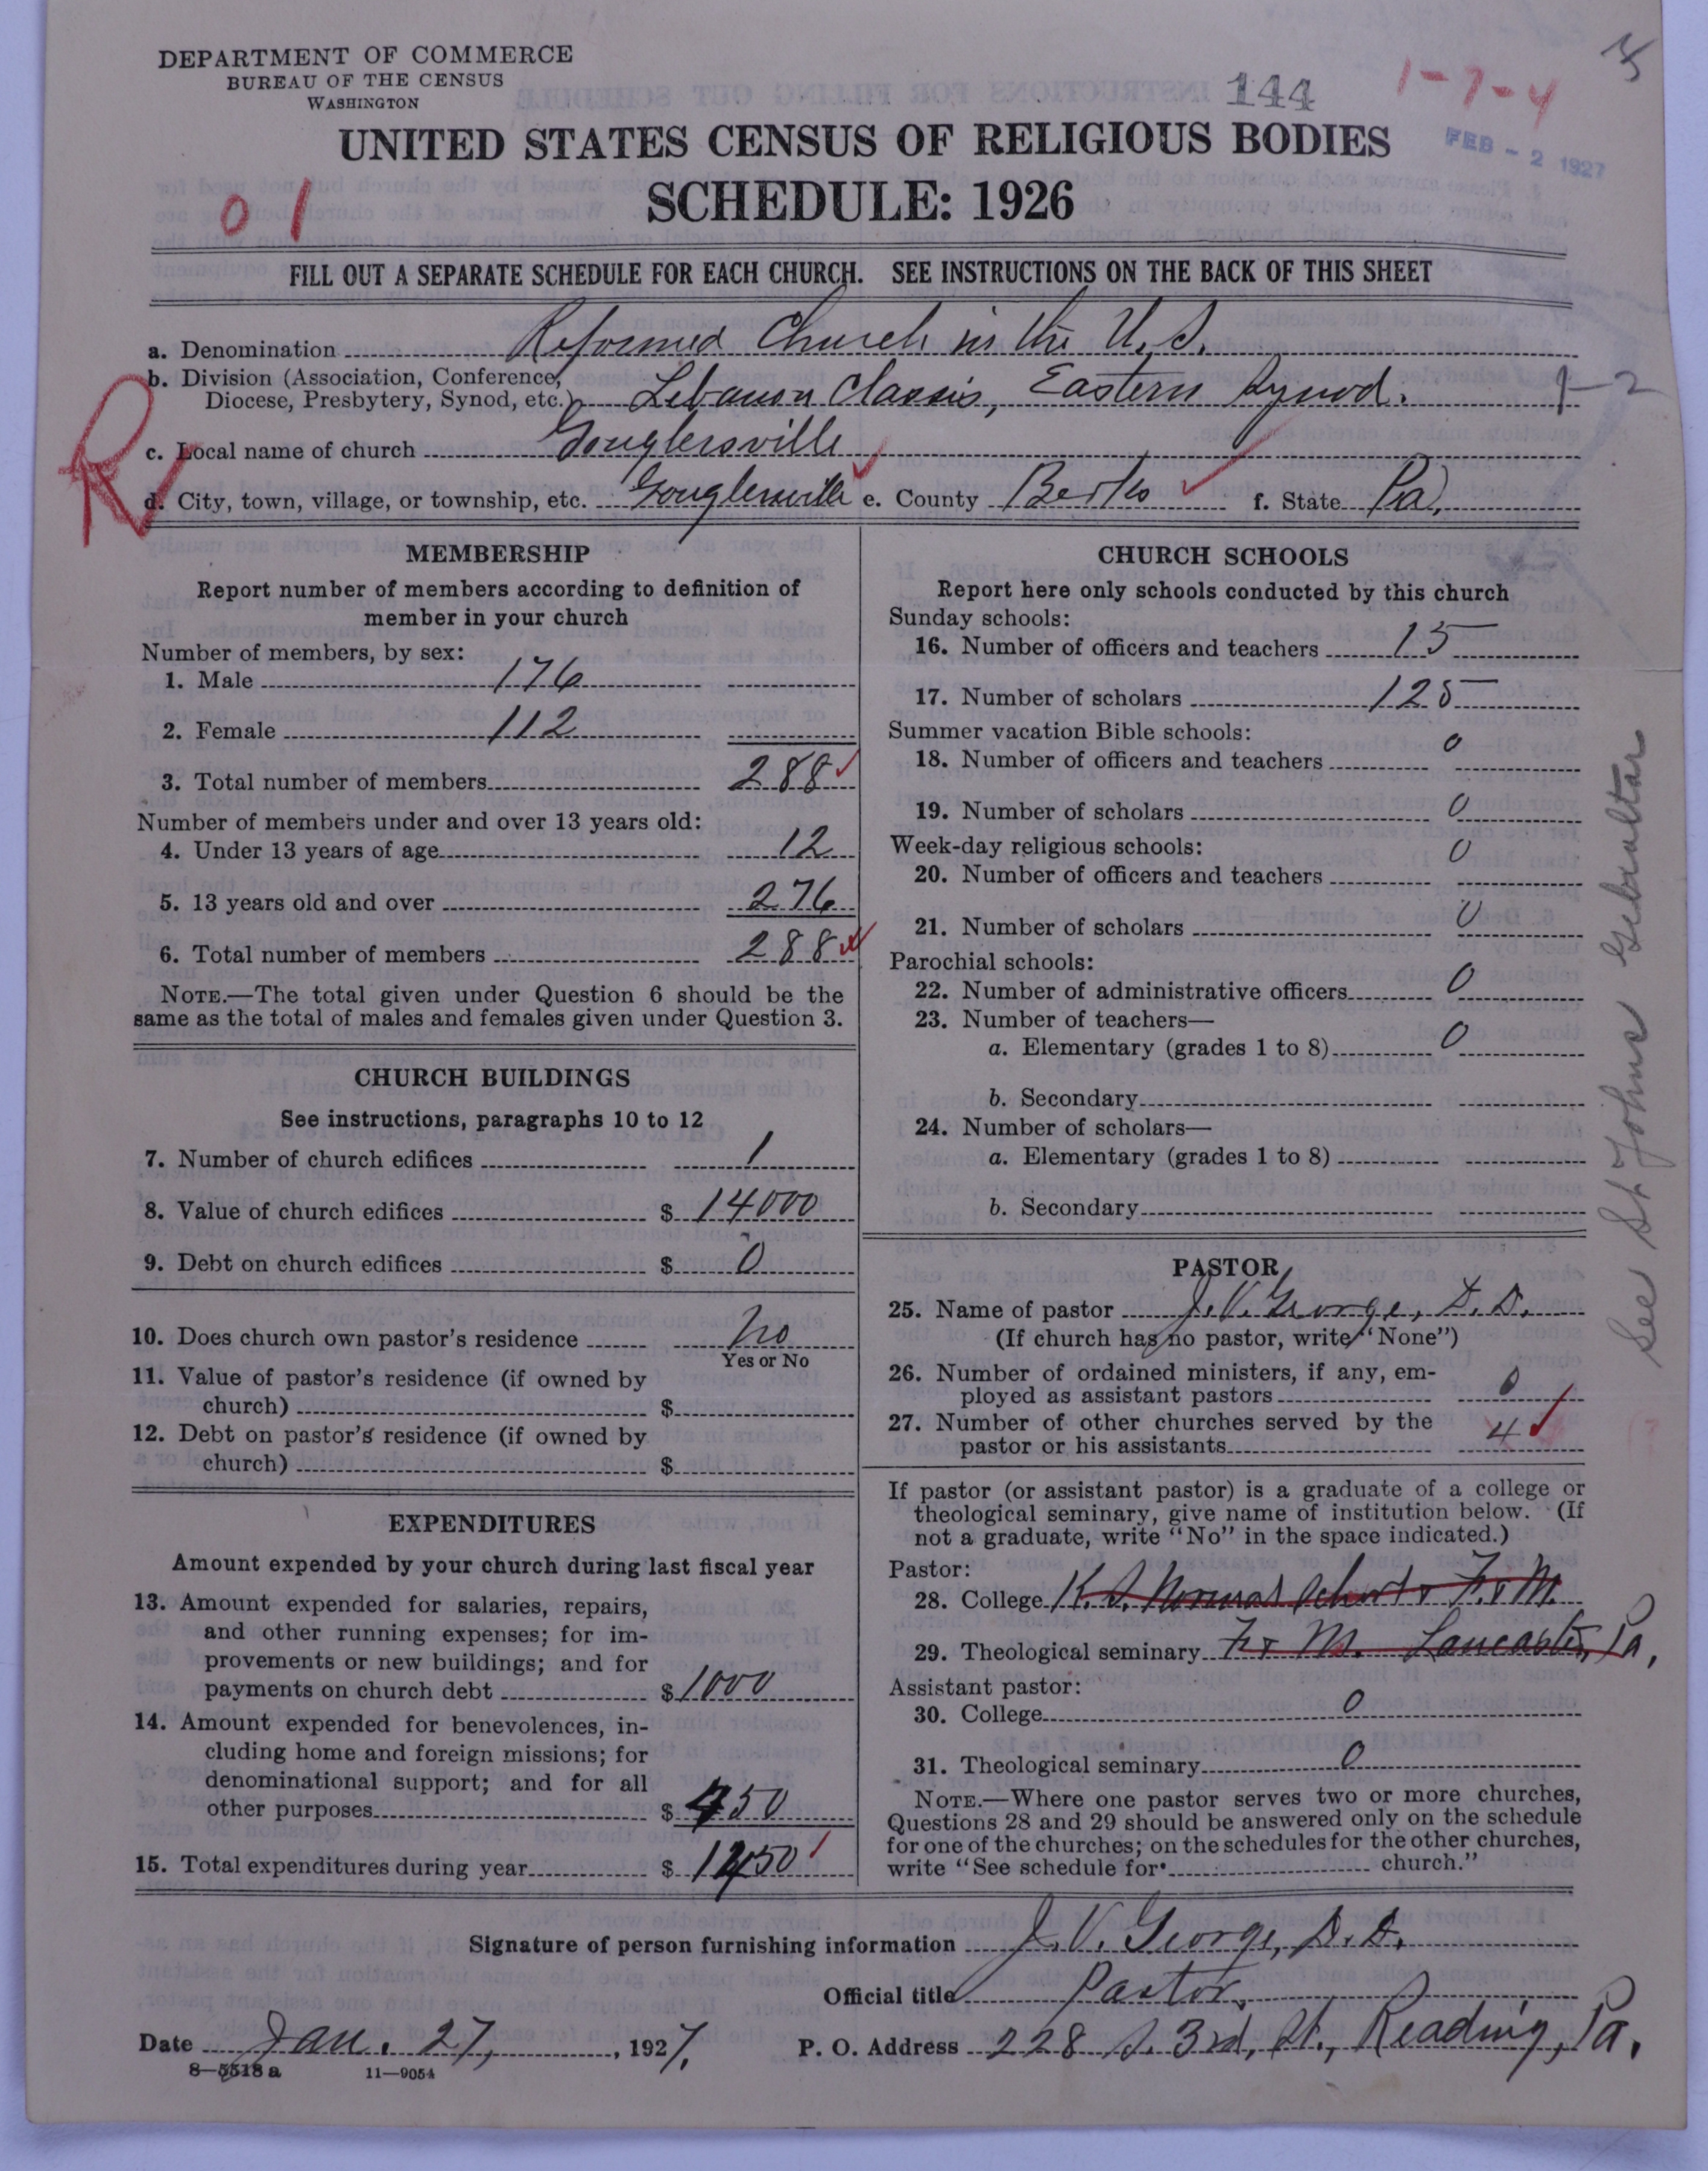 DEPARTMENT OF COMMERCE
BUREAU OF THE CENSUS
WASHINGTON
144
1-7-4
FEB - 2 1927
UNITED STATES CENSUS OF RELIGIOUS BODIES
SCHEDULE: 1926
01
FILL OUT A SEPARATE SCHEDULE FOR EACH CHURCH. SEE INSTRUCTIONS ON THE BACK OF THIS SHEET
a. Denomination Reformed Church in the U.S.
b. Division (Association, Conference,
Diocese, Presbytery, Synod, etc.) Lebanon Classis, Eastern Synod.
c. Local name of church Gouglersville
R
d. City, town, village, or township, etc. Gouglersville e. County Berks f. State Pa.
MEMBERSHIP
Report number of members according to definition of
member in your church
Number of members, by sex:
1. Male 176
2. Female 112
3. Total number of members 288
Number of members under and over 13 years old:
4. Under 13 years of age 12
5. 13 years old and over 276
6. Total number of members 288
NOTE.—The total given under Question 6 should be the
same as the total of males and females given under Question 3.
CHURCH BUILDINGS
See instructions, paragraphs 10 to 12
7. Number of church edifices 1
8. Value of church edifices $ 14000
9. Debt on church edifices $ 0
10. Does church own pastor's residence no
Yes or No
11. Value of pastor's residence (if owned by
church) $
12. Debt on pastor's residence (if owned by
church) $
EXPENDITURES
Amount expended by your church during last fiscal year
13. Amount expended for salaries, repairs,
and other running expenses; for im-
provements or new buildings; and for
payments on church debt $ 1000
14. Amount expended for benevolences, in-
cluding home and foreign missions; for
denominational support; and for all
other purposes $ 450
15. Total expenditures during year $ 1450
CHURCH SCHOOLS
Report here only schools conducted by this church
Sunday schools:
16. Number of officers and teachers 15
17. Number of scholars 125
Summer vacation Bible schools:
18. Number of officers and teachers 0
19. Number of scholars 0
Week-day religious schools:
20. Number of officers and teachers 0
21. Number of scholars 0
Parochial schools:
22. Number of administrative officers 0
23. Number of teachers—
a. Elementary (grades 1 to 8) 0
b. Secondary
24. Number of scholars—
a. Elementary (grades 1 to 8)
b. Secondary
PASTOR
25. Name of pastor J. V. George, D. D.
(If church has no pastor, write "None")
26. Number of ordained ministers, if any, em-
ployed as assistant pastors 0
27. Number of other churches served by the
pastor or his assistants 4
If pastor (or assistant pastor) is a graduate of a college or
theological seminary, give name of institution below. (If
not a graduate, write "No" in the space indicated.)
Pastor:
28. College K. S. Normal School & F. & M.
29. Theological seminary F. & M. Lancaster, Pa.
Assistant pastor:
30. College 0
31. Theological seminary 0
NOTE.—Where one pastor serves two or more churches,
Questions 28 and 29 should be answered only on the schedule
for one of the churches; on the schedules for the other churches,
write "See schedule for church."
See St Johns Gebraltar
Signature of person furnishing information J. V. George, D. D.
Official title Pastor,
Date Jan. 27, 1927. P. O. Address 228 S. 3rd, St., Reading, Pa.
8—5518 a 11—9054